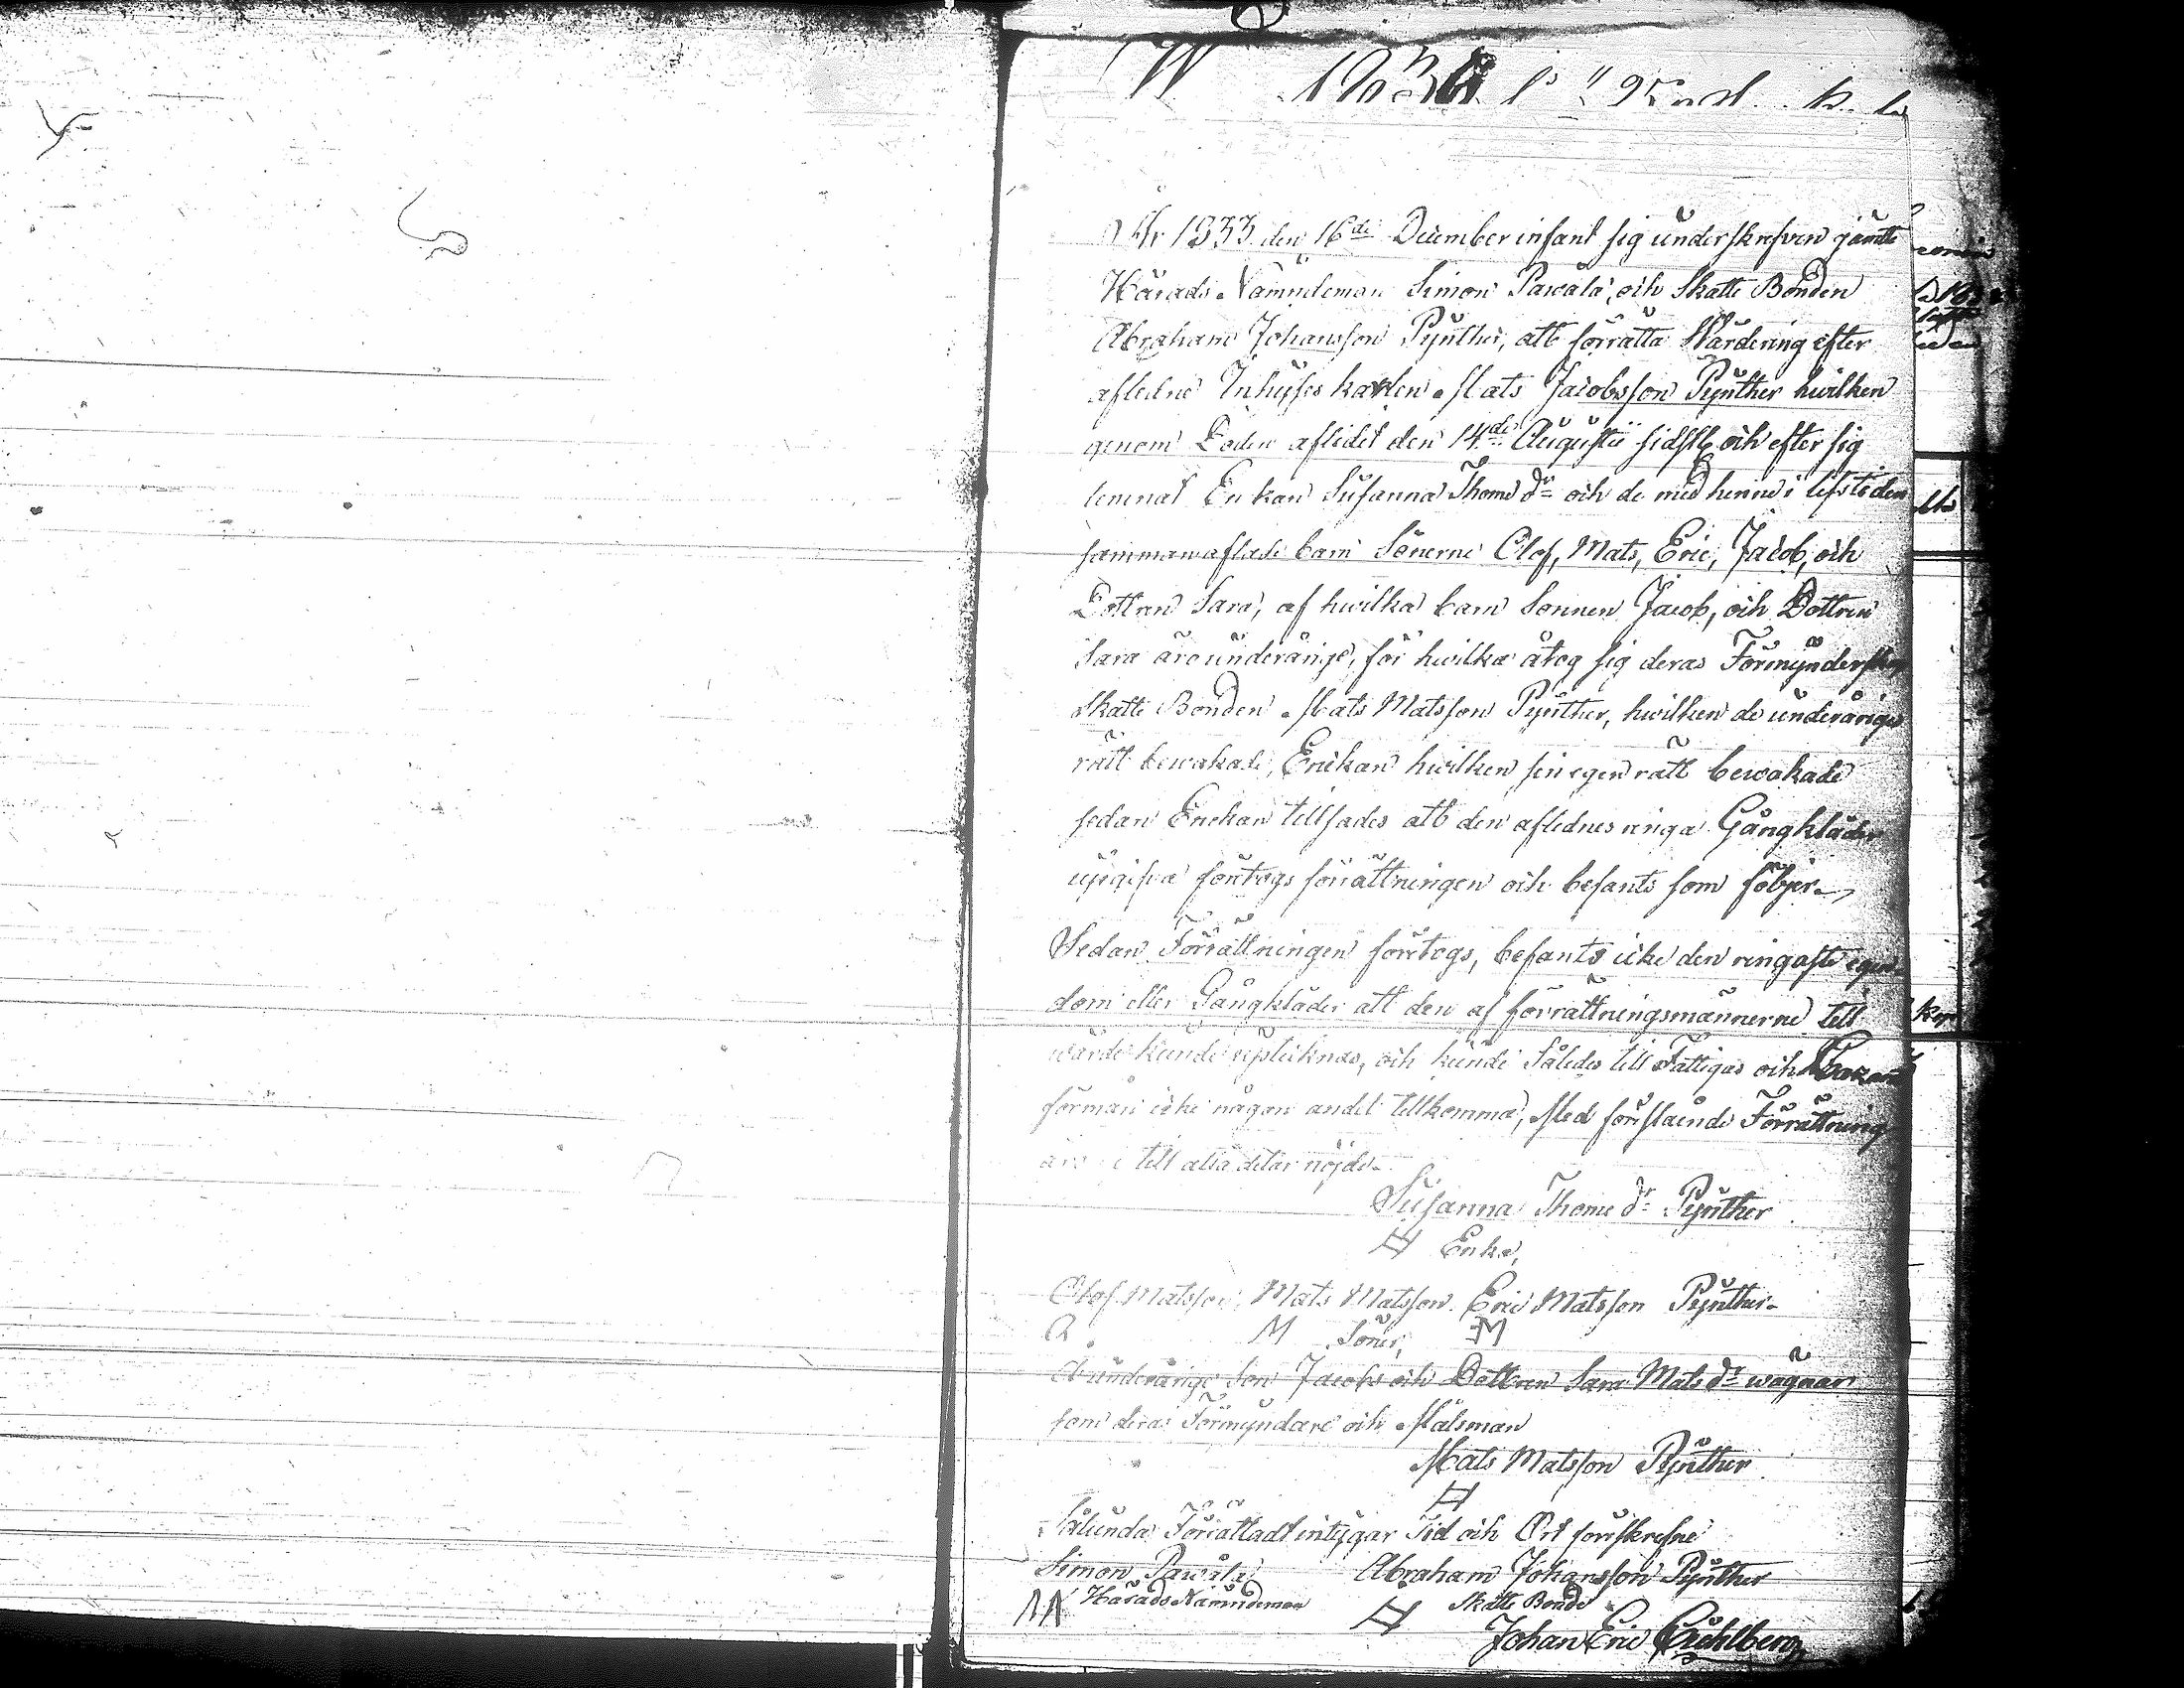 År 1833 den 16de December infant sig underskrefven jämte
Härads Nämndeman Simon Pawåla, och Skatte Bonden
Abraham Johansson Pynther, att förrätta Wärdering efter
afledne Inhyses karlen Mats Jacobsson Pynther hwilken
genom Döden aflidet den 14de Augustii sidstl. och efter sig
lemnat Enkan Susanna Thome dr och de med henne i lifstiden
sammanaflade barn Sönerne Olof, Mats, Eric, Jacob, och
Dottren Sara, af hwilka barn Sonnen Jacob, och Dottren
Sara äro underårige, för hwilka åtog sig deras Förmynderskap
Skatte Bonden Mats Matsson Pynther, hwilken de underåriges
rätt bewakade, Enkan hwilken sin egen rätt bewakade
sedan Enckan tillsades att den aflednes ringa Gångkläder
upgifva företogs förrättningen och befants som följer
Sedan Förrättningen företogs, befants icke den ringaste egen-
dom eller Gångkläder att den af förrättningsmännerne till
wärde kunde upteknas, och kunde Således till Fattigas och
förmån icke någon andel tillkomma, Med förestående Förrättning
äro till alla delar nöjde
Susanna Thome dr Pynther
Enka,
Olof Matsson, Mats Matsson. Eric Matsson Pynther
M Söner, M
underårige Son Jacobs och Dottren Sara Mats dr wägnar
som deras Förmyndare och Målsman
Mats Matsson Pynther
Sålunda Förrättadt intygar Tid och Ort förskrefne
Simon Pawåla Abraham Johansson Pynther
Härads Nämndeman Skatte Bonde
Johan Eric